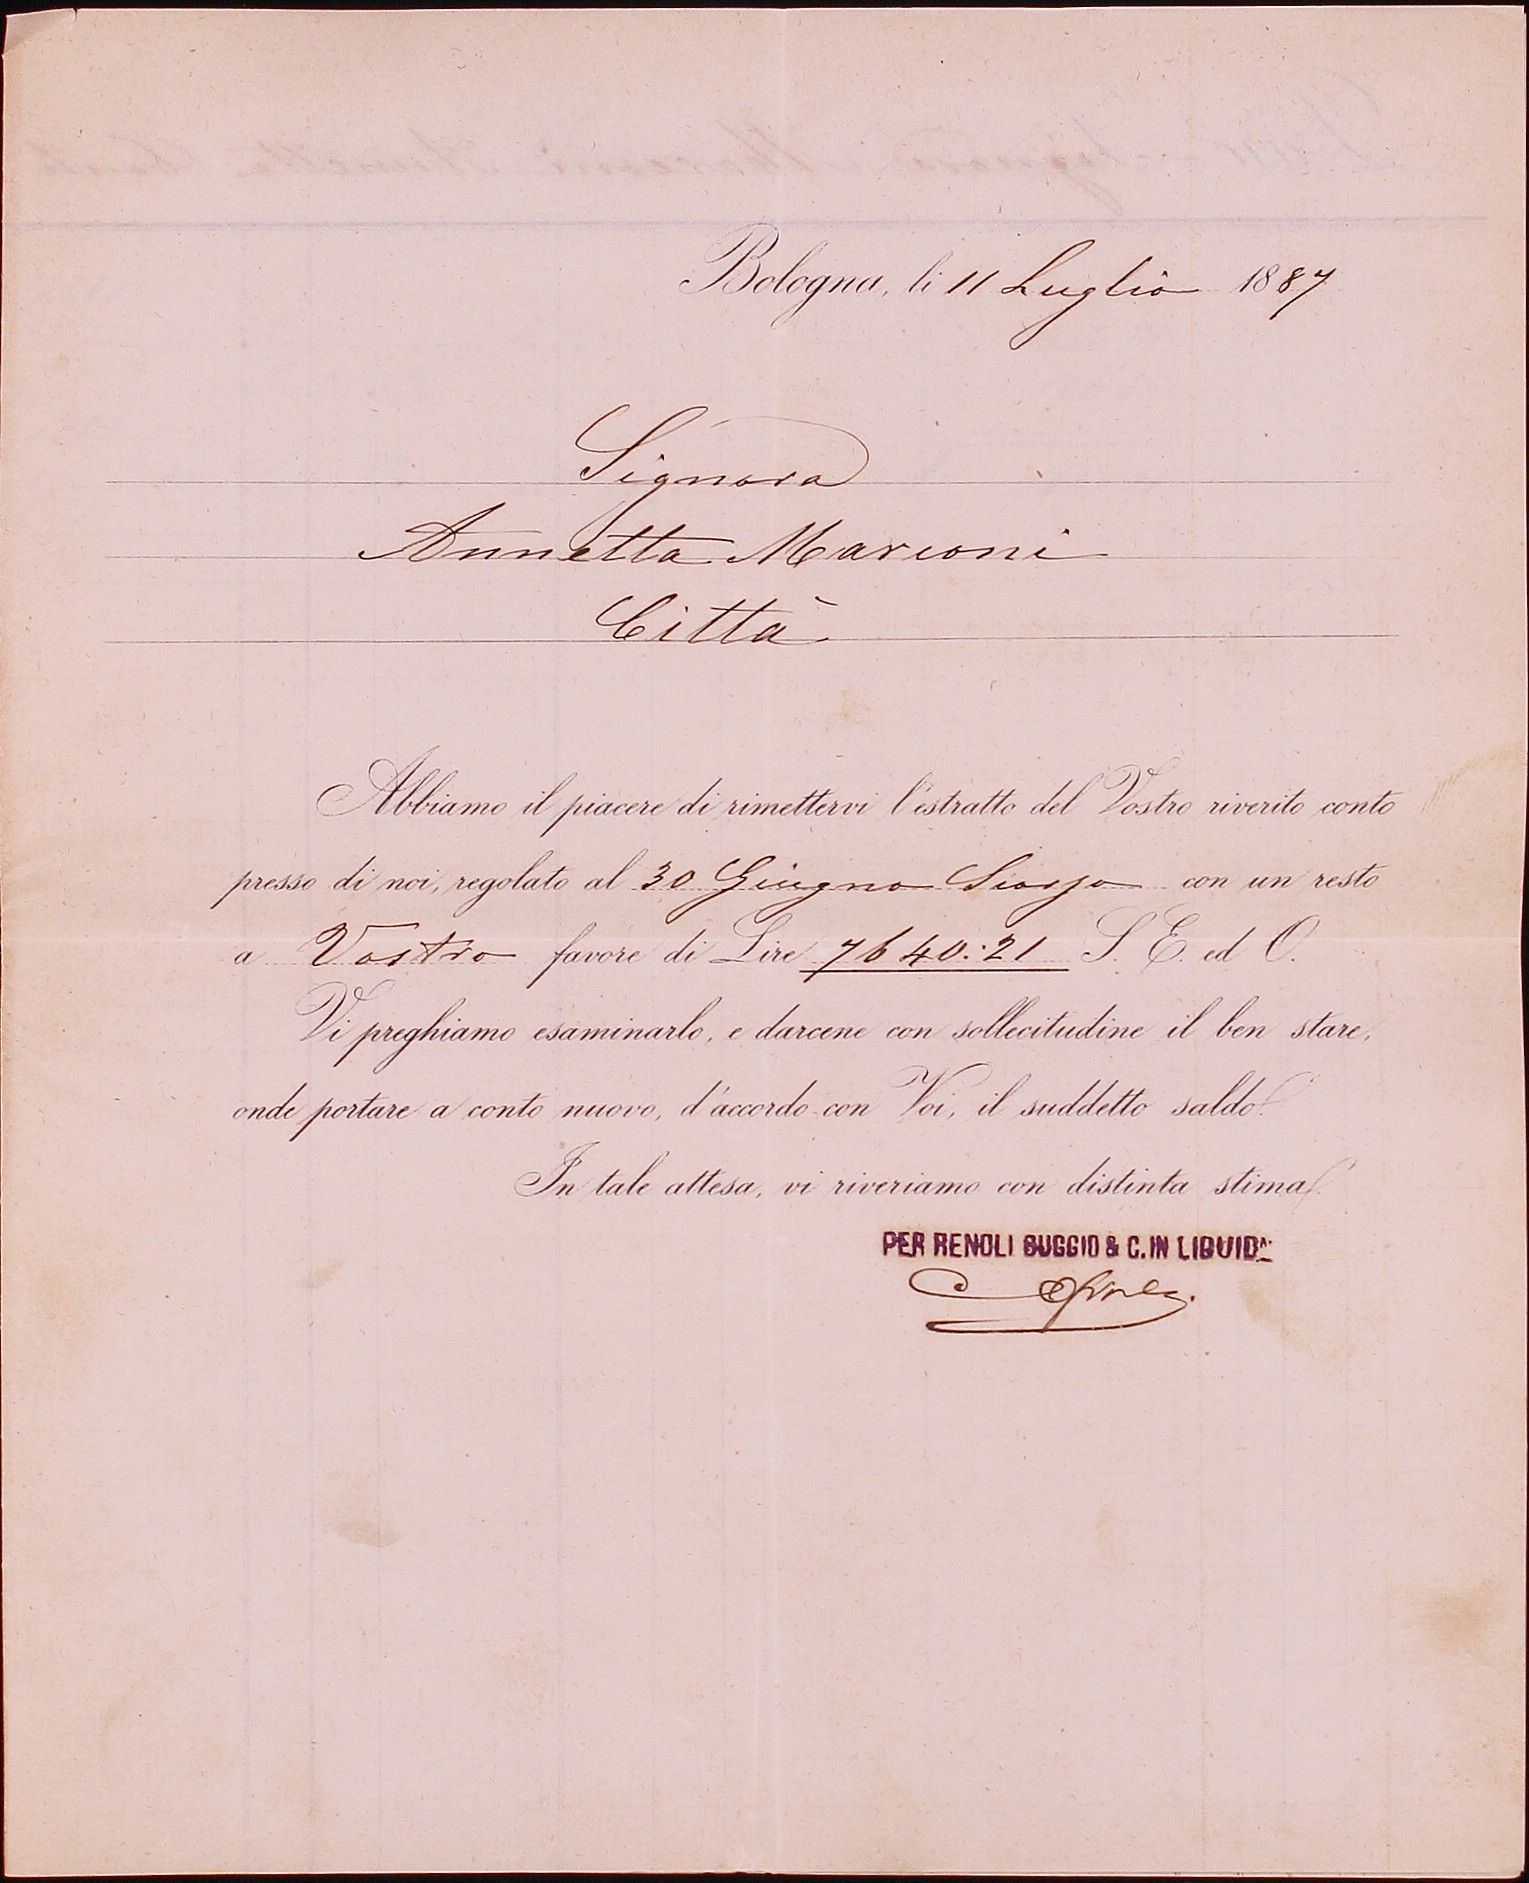 Bologna, li 11 Luglio 1887
Signora
Annetta Marconi
Città
Abbiamo il piacere di rimettervi l'estratto del Vostro riverito conto
presso di noi, regolato al 30 Giugno Scorso con un resto
a Vostro favore di Lire 7640:21 S. E. ed O.
Vi preghiamo esaminarlo, e darcene con sollecitudine il ben stare,
onde portare a conto nuovo, d'accordo con Voi, il suddetto saldo.
In tale attesa, vi riveriamo con distinta stima.
PER RENOLI BUGGIO & C. IN LIQUID.